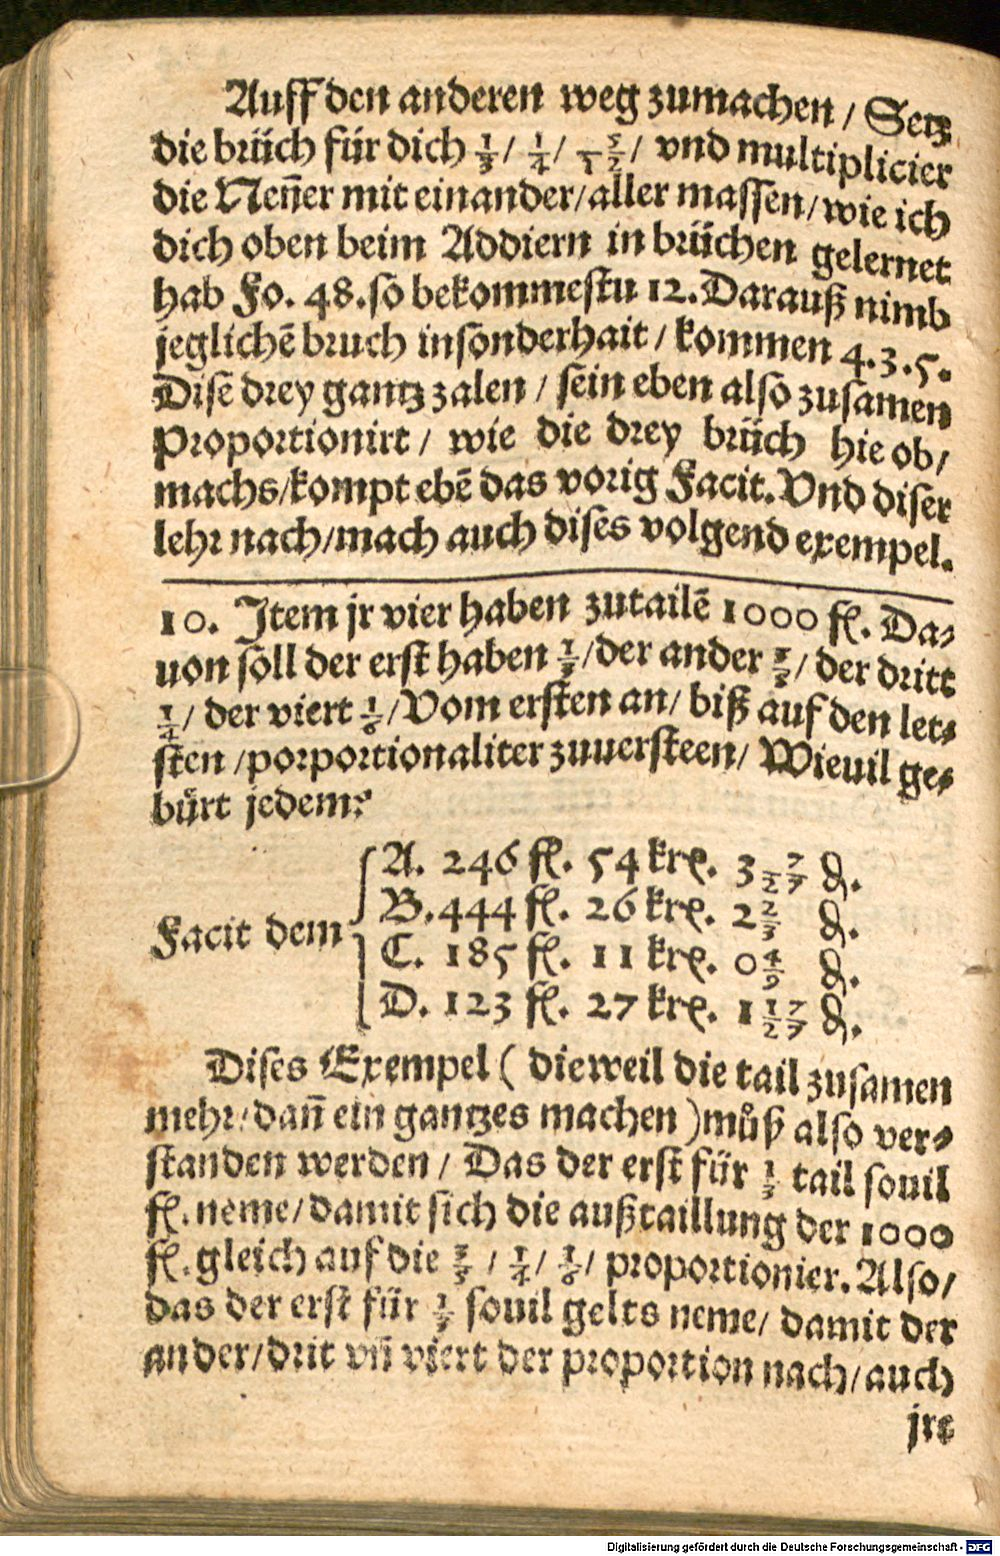 Auff den anderen weg zumachen / Setz
die brüch für dich 1/3 / 1/4 / 5/12 / vnd multiplicier
die Neñer mit einander / aller massen / wie ich
dich oben beim Addiern in brüchen gelernet
hab Fo. 48. so bekommestu 12. Darauß nimb
jeglichẽ bruch insonderhait / kommen 4. 3. 5.
Dise drey gantz zalen / sein eben also zusamen
Proportionirt / wie die drey brüch hie ob /
machs / kompt ebẽ das vorig Facit. Vnd diser
lehr nach / mach auch dises volgend exempel.
10. Item jr vier haben zutailẽ 1000 fl. Da⸗
uon soll der erst haben 1/3 / der ander 3/5 / der dritt
1/4 / der viert 1/6 / Vom ersten an / biß auf den let⸗
sten / porportionaliter zuuersteen / Wieuil ge⸗
bürt jedem?
Facit dem
A. 246 fl. 54 krꝭ. 3 7/27 ₰.
B. 444 fl. 26 krꝭ. 2 2/3 ₰.
C. 185 fl. 11 krꝭ. 0 4/9 ₰.
D. 123 fl. 27 krꝭ. 1 17/27 ₰.
Dises Exempel ( dieweil die tail zusamen
mehr / dañ ein gantzes machen ) můß also ver⸗
standen werden / Das der erst für 1/3 tail souil
fl. neme / damit sich die außtaillung der 1000
fl. gleich auf die 3/5 / 1/4 / 1/6 / proportionier. Also /
das der erst für 1/3 souil gelts neme / damit der
ander / drit vñ viert der proportion nach / auch
jre
Digitalisierung gefördert durch die Deutsche Forschungsgemeinschaft - DFG